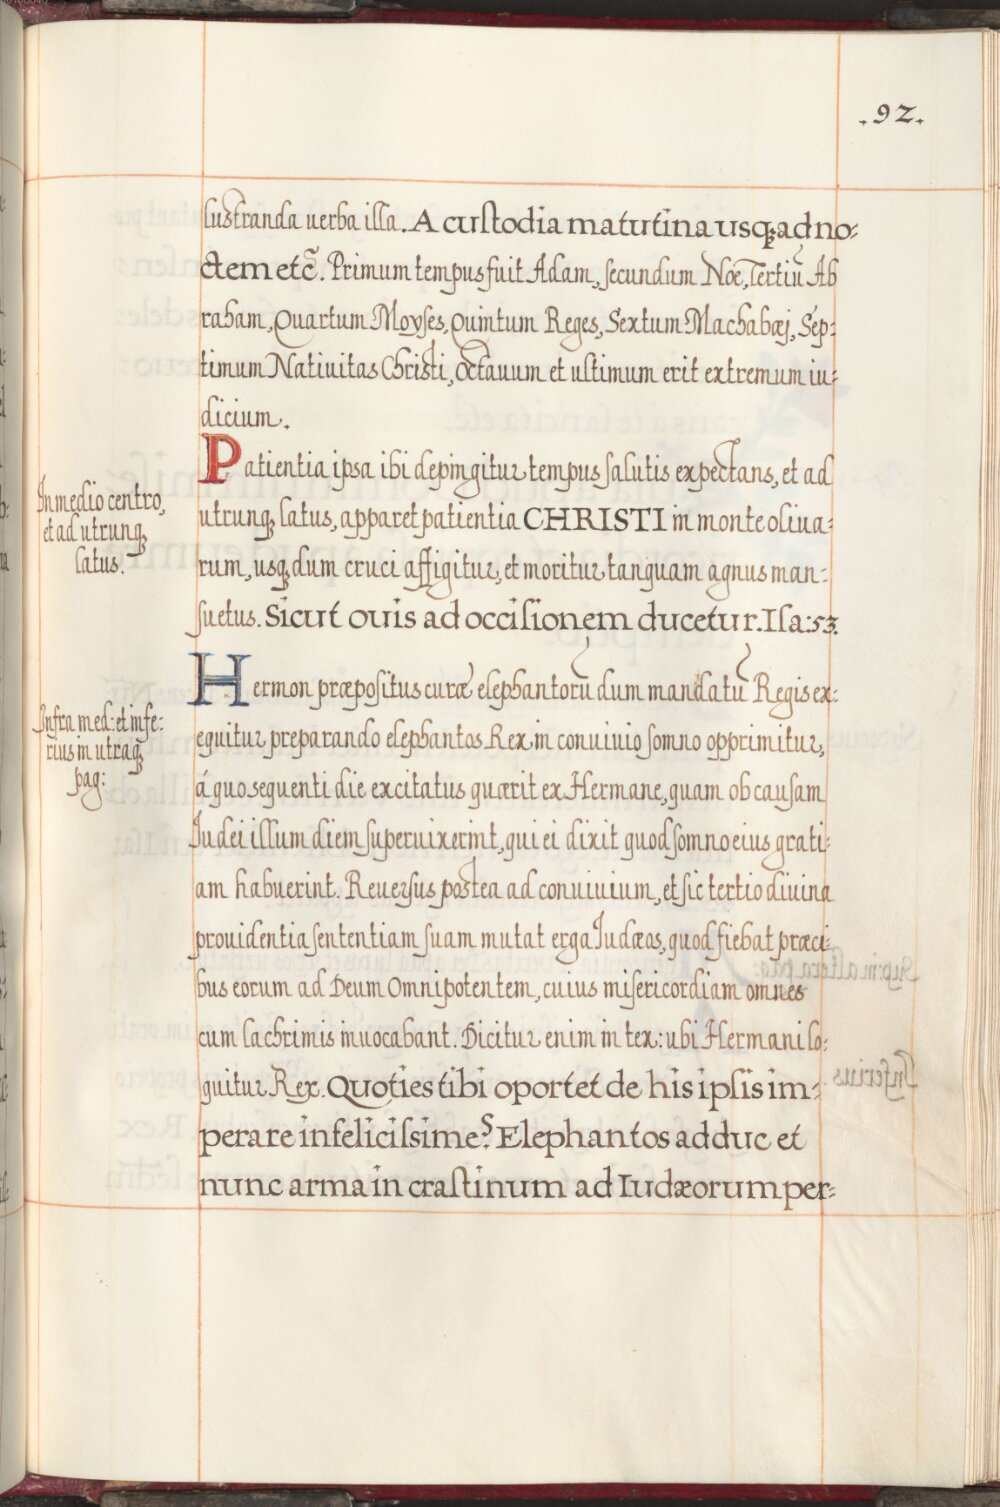 .92.
lustranda uerba illa. A custodia matutina usq; ad no-
ctem etc̃. Primum tempus fuit Adam, secundum Noe, Tertiũ Ab
raham, Quartum Moyses, Quintum Reges, Sextum Machabæj, Sep-
timum Natiuitas Christi, Octauum et ultimum erit extremum iu-
dicium.
In medio centro,
et ad utrunq;
latus.
Patientia ipsa ibi depingitur tempus salutis expectans, et ad
utrunq; latus, apparet patientia CHRISTI in monte oliua-
rum, usq; dum cruci affigitur, et moritur tanquam agnus man-
suetus. Sicut ouis ad occisionem ducetur. Isa: 53.
Infra med: et infe-
rius in utraq;
pag:
Hermon præpositus curæ elephantorũ dum mandatũ Regis ex-
equitur preparando elephantos Rex in conuiuio somno opprimitur,
á quo sequenti die excitatus quærit ex Hermane, quam ob causam
Iudei illum diem superuixerint, qui ei dixit quod somno eius grati-
am habuerint. Reuersus postea ad conuiuium, et sic tertio diuina
prouidentia sententiam suam mutat erga Iudæos, quod fiebat præci-
bus eorum ad Deum Omnipotentem, cuius misericordiam omnes
cum lachrimis inuocabant. Dicitur enim in tex: ubi Hermani lo-
quitur Rex. Quoties tibi oportet de his ipsis im-
perare infelicissime? Elephantos adduc et
nunc arma in crastinum ad Iudæorum per-